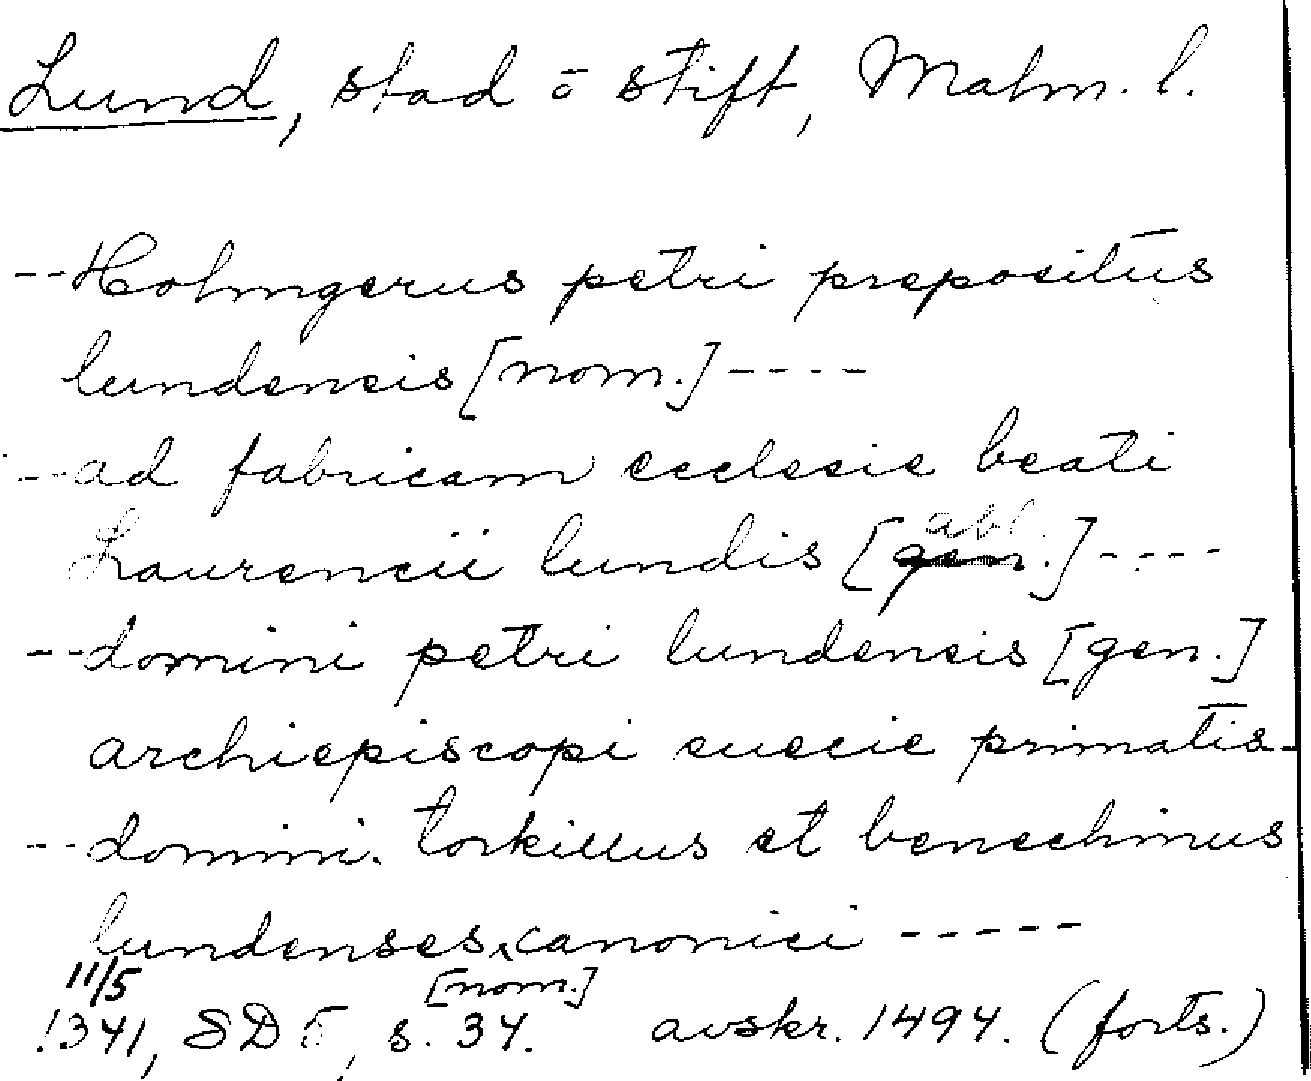 Lund, stad o stift, Malm. l.
--Holmgerus petri prepositus
lundensis [nom.] ----
--ad fabricam ecclesie beati
Laurencii lundis [abl.] ----
--domini petri lundensis [gen.]
archiepiscopi suecie primatis-
--domini. torkillus et benechinus
lundenses canonici -----
11/5 [nom.]
1341, SD 5, s. 34. avskr. 1494. (forts.)